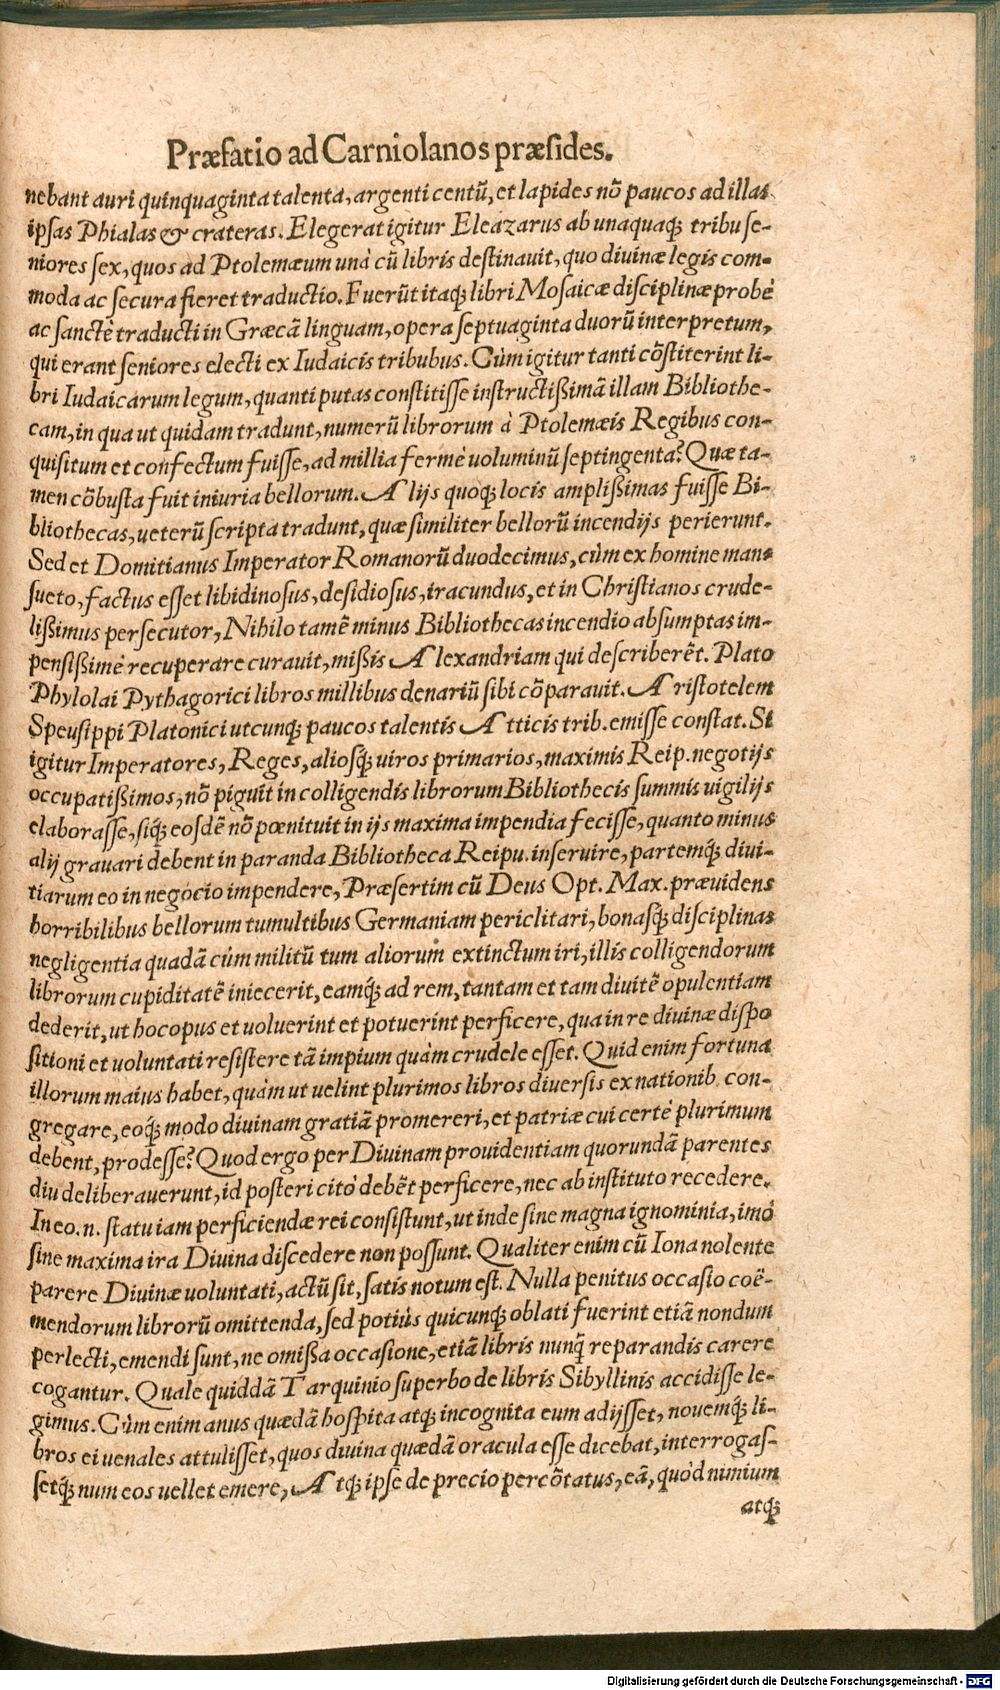 Præfatio ad Carniolanos præsides.
nebant auri quinquaginta talenta, argenti centũ, et lapides nõ paucos ad illas
ipsas Phialas & crateras. Elegerat igitur Eleazarus ab unaquaq; tribu se-
niores sex, quos ad Ptolemæum unà cũ libris destinauit, quo diuinæ legis com-
moda ac secura fieret traductio. Fuerũt itaq; libri Mosaicæ disciplinæ probè
ac sanctè traducti in Græcã linguam, opera septuaginta duorũ interpretum,
qui erant seniores electi ex Iudaicis tribubus. Cùm igitur tanti cõstiterint li-
bri Iudaicarum legum, quanti putas constitisse instructißimã illam Bibliothe-
cam, in qua ut quidam tradunt, numerũ librorum à Ptolemæis Regibus con-
quisitum et confectum fuisse, ad millia fermè voluminũ septingenta? Quæ ta-
men cõbusta fuit iniuria bellorum. Alijs quoq; locis amplißimas fuisse Bi-
bliothecas, ueterũ scripta tradunt, quæ similiter bellorũ incendijs perierunt.
Sed et Domitianus Imperator Romanorũ duodecimus, cùm ex homine man-
sueto, factus esset libidinosus, desidiosus, iracundus, et in Christianos crude-
lißimus persecutor, Nihilo tamẽ minus Bibliothecas incendio absumptas im-
pensißimè recuperare curauit, mißis Alexandriam qui describerẽt. Plato
Phylolai Pythagorici libros millibus denariũ sibi cõparauit. Aristotelem
Speusippi Platonici utcunq; paucos talentis Atticis trib. emisse constat. Si
igitur Imperatores, Reges, aliosq́; uiros primarios, maximis Reip. negotijs
occupatißimos, nõ piguit in colligendis librorum Bibliothecis summis uigilijs
elaborasse, siq́; eosdẽ nõ pœnituit in ijs maxima impendia fecisse, quanto minus
alij grauari debent in paranda Bibliotheca Reipu. inseruire, partemq́; diui-
tiarum eo in negocio impendere, Præsertim cũ Deus Opt. Max. præuidens
horribilibus bellorum tumultibus Germaniam periclitari, bonasq́; disciplinas
negligentia quadã cùm militũ tum aliorum extinctum iri, illis colligendorum
librorum cupiditatẽ iniecerit, eamq́; ad rem, tantam et tam diuitẽ opulentiam
dederit, ut hoc opus et uoluerint et potuerint perficere, qua in re diuinæ dispo
sitioni et uoluntati resistere tã impium quàm crudele esset. Quid enim fortuna
illorum maius habet, quàm ut uelint plurimos libros diuersis ex nationib. con-
gregare, eoq́; modo diuinam gratiã promereri, et patriæ cui certè plurimum
debent, prodesse? Quod ergo per Diuinam prouidentiam quorundã parentes
diu deliberauerunt, id posteri citò debẽt perficere, nec ab instituto recedere.
In eo.n. statu iam perficiendæ rei consistunt, ut inde sine magna ignominia, imò
sine maxima ira Diuina discedere non possunt. Qualiter enim cũ Iona nolente
parere Diuinæ uoluntati, actũ sit, satis notum est. Nulla penitus occasio coë-
mendorum librorũ omittenda, sed potiùs quicunq; oblati fuerint etiã nondum
perlecti, emendi sunt, ne omißa occasione, etiã libris nunq̃ reparandis carere
cogantur. Quale quiddã Tarquinio superbo de libris Sibyllinis accidisse le-
gimus. Cùm enim anus quædã hospita atq; incognita eum adijsset, nouemq́; li-
bros ei uenales attulisset, quos diuina quædã oracula esse dicebat, interrogas-
setq́; num eos uellet emere, Atq; ipse de precio percõtatus, eã, quòd nimium
atq;
Digitalisierung gefördert durch die Deutsche Forschungsgemeinschaft - DFG